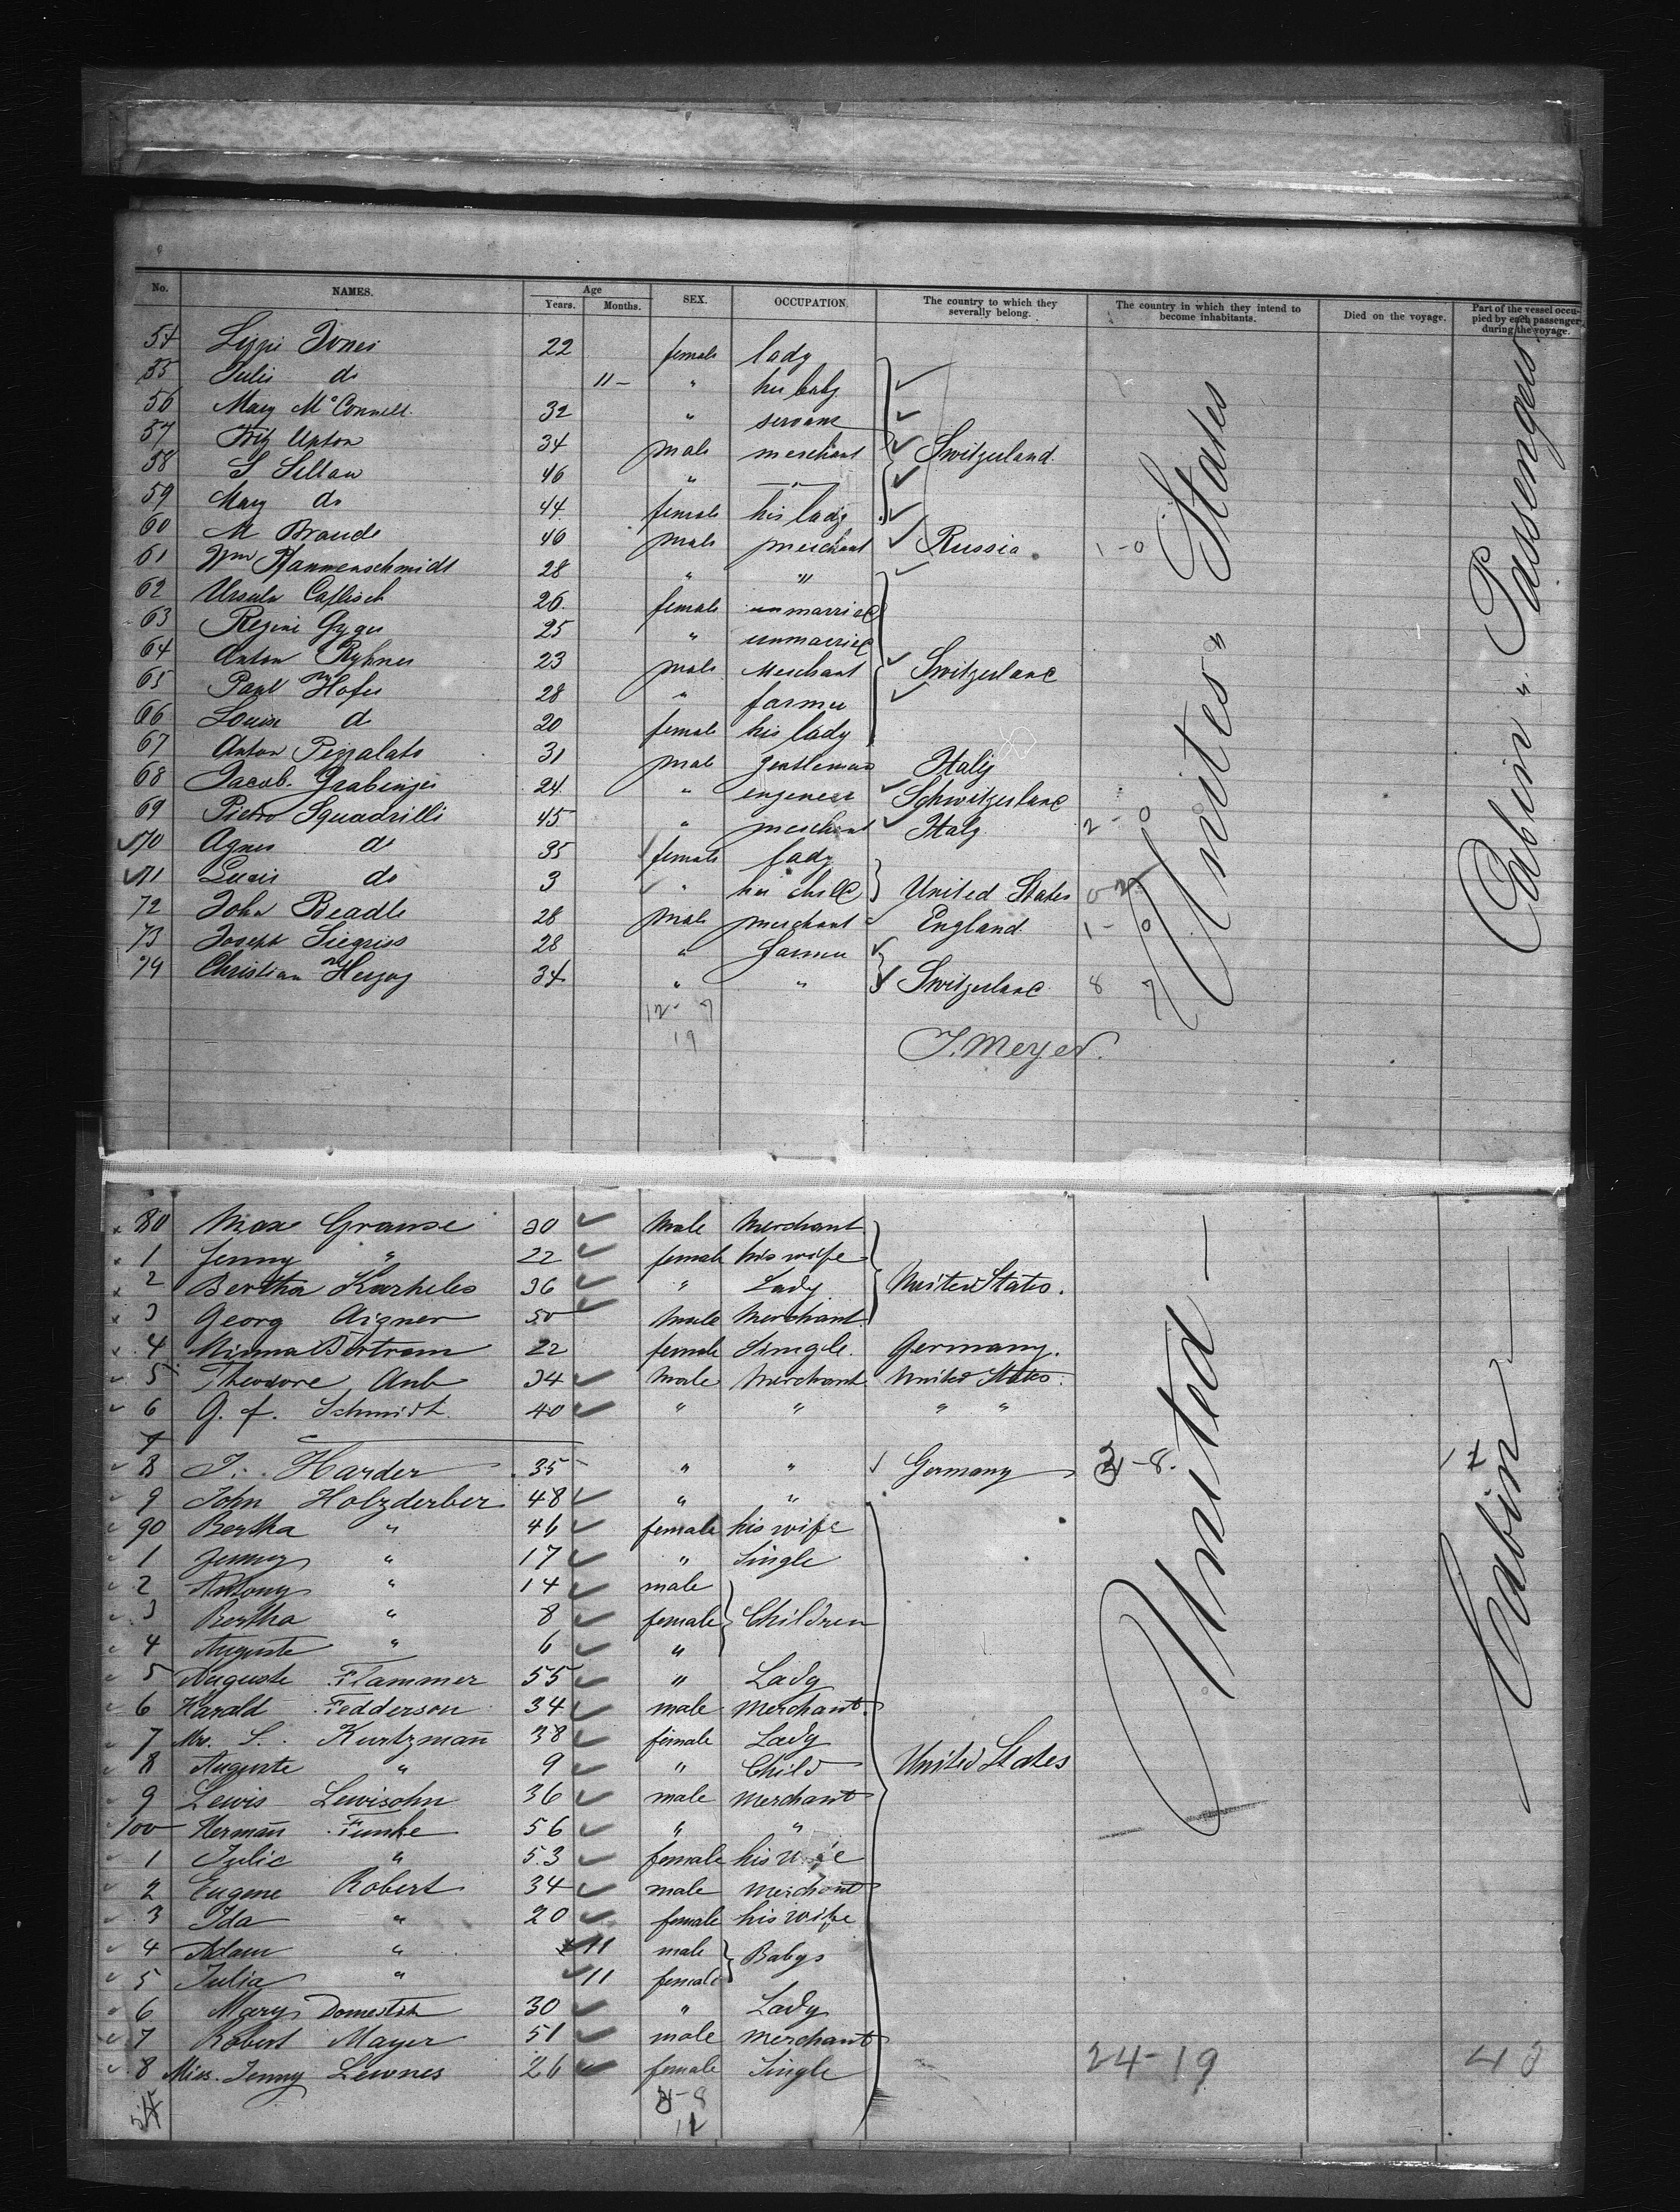 No. NAMES. Age Years. Months. SEX. OCCUPATION. The country to which they severally belong. The country in which they intend to become inhabitants. Died on the voyage. Part of the vessel occupied by each passenger during the voyage.
54 Lizzie Jones 22 female lady
55 Julie do 11 - " her baby
56 Mary McConnell 32 " servant
57 Fritz Upton 34 male merchant Switzerland
58 S Seltan 46 " "
59 Mary do 44 female his lady
60 M Braude 46 male merchant Russia 1-0
61 Wm Hammerschmidt 28 " "
62 Ursula Caflisch 26 female unmarried
63 Regine Gyger 25 " unmarried
64 Anton Ryhner 23 male Merchant Switzerland
65 Paul Hofer 28 " farmer
66 Louise do 20 female his lady
67 Anton Pezzalato 31 male gentleman Italy
68 Jacob Grabinger 24 " engeneer Schwitzerland
69 Pietro Squadrilli 45 " merchant Italy 2-0
70 Agnes do 35 female lady
71 Lucie do 3 " her child United States 0 2
72 John Beadle 28 male merchant England 1-0
73 Joseph Siegriss 28 " farmer
74 Christian Herzog 34 " " Switzerland 8 7
12-7
19
J. Meyer.
United States
Cabin Passengers
80 Max Grause 30 Male Merchant
1 Jenny " 22 female his wife
2 Bertha Karheles 36 " Lady United States.
3 Georg Aigner 50 Male Merchant
4 Minna Bertram 22 female Single. Germany.
5 Theodore Aub 34 Male Merchant United States.
6 G. f. Schmidt 40 " " " "
7
8 J. Harder 35 " " Germany -8.
9 John Holzderber 48 " "
90 Bertha " 46 female his wife
1 Jenny " 17 " Single
2 Antony " 14 male
3 Bertha " 8 female Children
4 Auguste " 6 "
5 Auguste Flammer 55 " Lady
6 Harald Fedderson 34 male Merchant
7 Mrs. S. Kurtzmañ 38 female Lady
8 Auguste " 9 " Child United States
9 Lewis Lewisohn 36 male Merchant
100 Hermañ Funke 56 " "
1 Julie " 53 female his wife
2 Eugene Robert 34 male Merchant
3 Ida " 20 female his wife
4 Adam " 11 male Babys
5 Julia " 11 female
6 Mary Domestik 30 " Lady
7 Robert Mayer 51 male Merchant
8 Miss. Jenny Lewnes 26 female Single 24-19
-8
12
United
Cabin